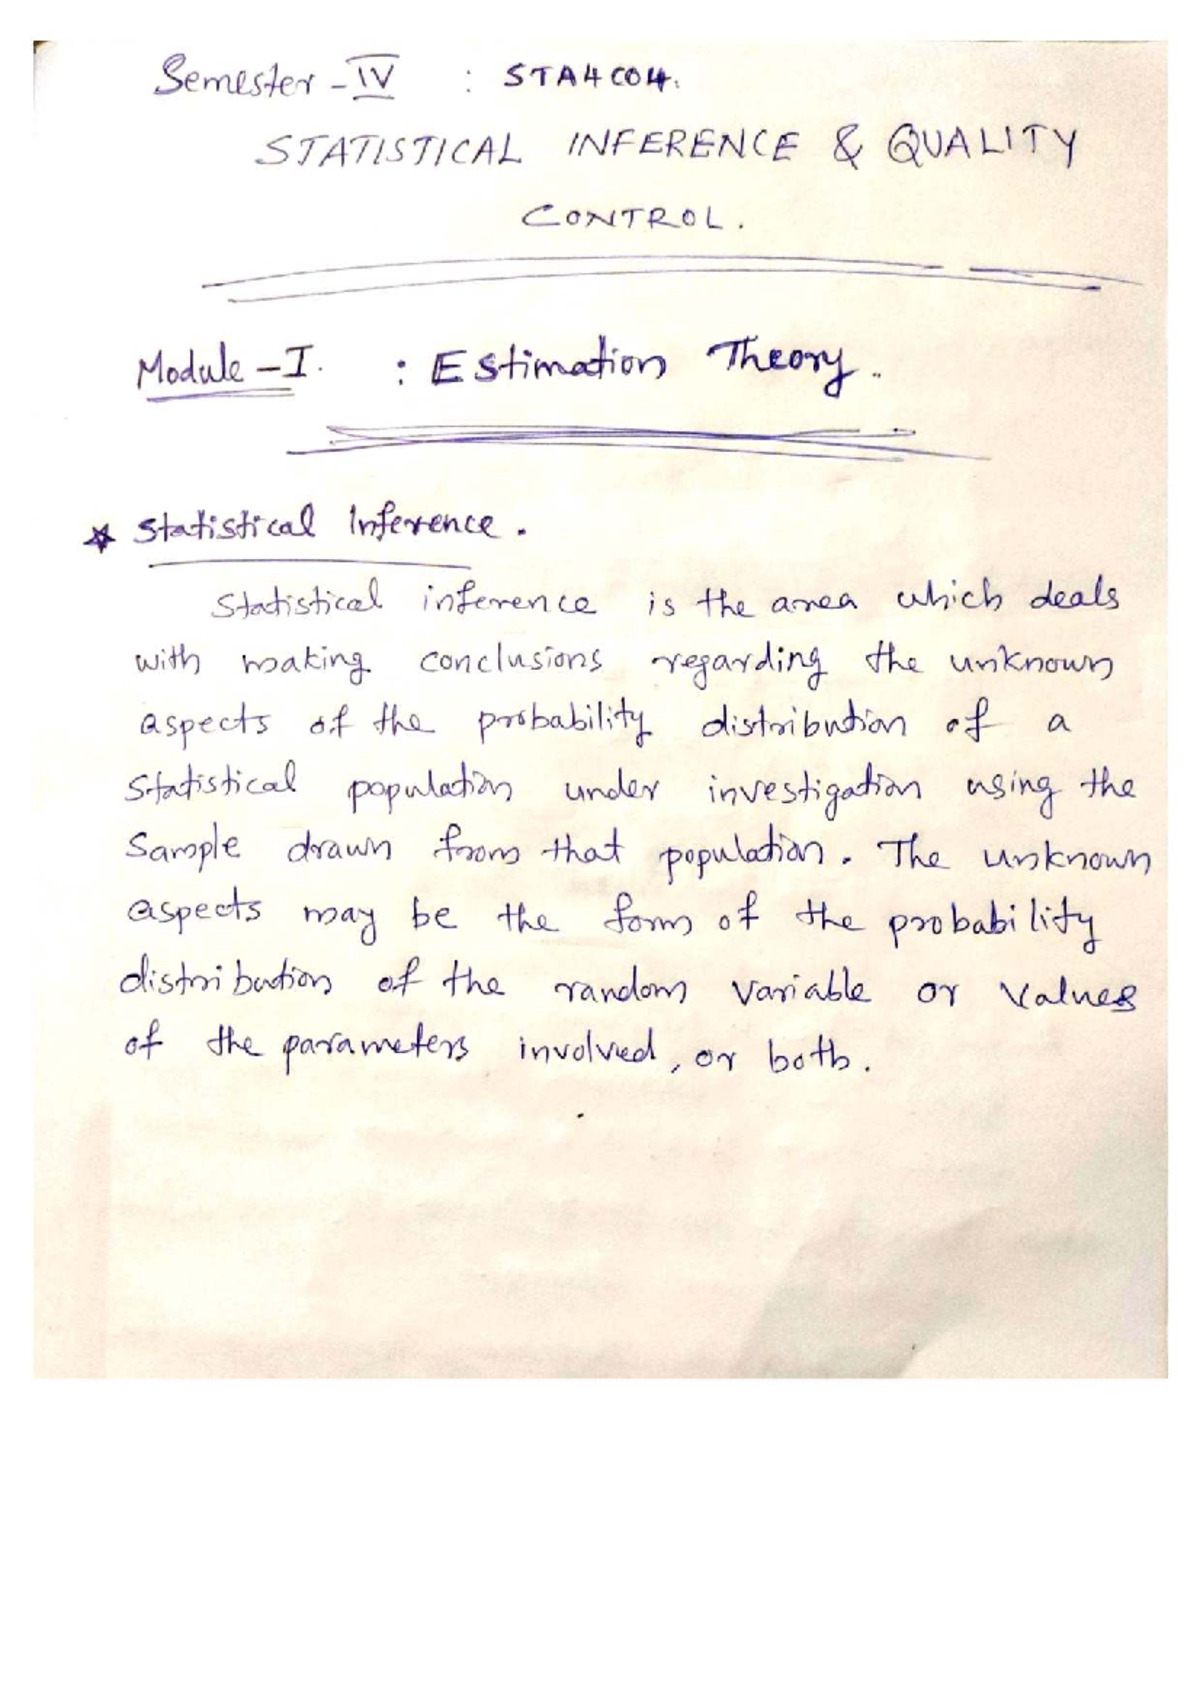 Semester - IV : STA4C04.
STATISTICAL INFERENCE & QUALITY
CONTROL.
Module - I. : Estimation Theory.
* Statistical Inference.
Statistical inference is the area which deals
with making conclusions regarding the unknown
aspects of the probability distribution of a
Statistical population under investigation using the
Sample drawn from that population. The unknown
aspects may be the form of the probability
distribution of the random variable or values
of the parameters involved, or both.